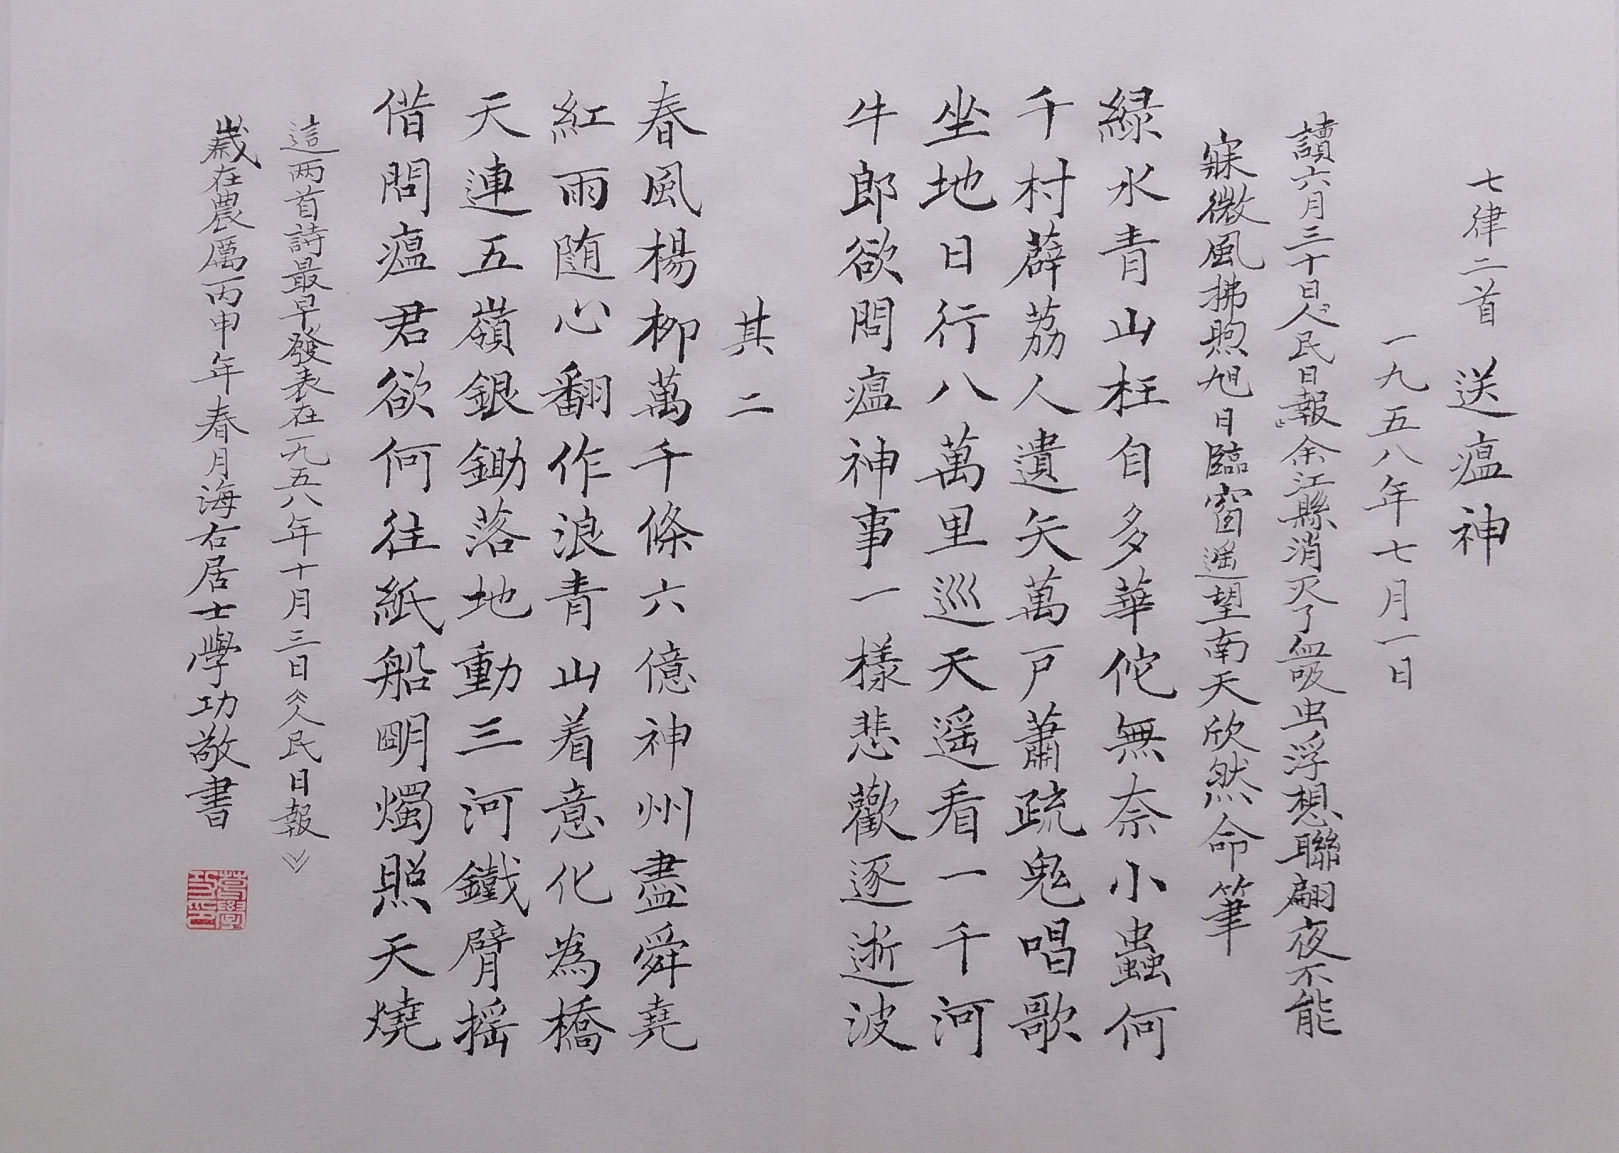 七律二首 送瘟神
一九五八年七月一日
讀六月三十日《人民日報》余江縣消灭了血吸虫浮想聯翩夜不能
寐微風拂煦旭日臨窗遥望南天欣然命筆
緑水青山枉自多華佗無奈小蟲何
千村薜荔人遺矢萬户蕭疏鬼唱歌
坐地日行八萬里巡天遥看一千河
牛郎欲問瘟神事一樣悲歡逐逝波
其二
春風楊柳萬千條六億神州盡舜堯
紅雨随心翻作浪青山着意化為橋
天連五嶺銀鋤落地動三河鐵臂摇
借問瘟君欲何往紙船明燭照天燒
這两首詩最早發表在一九五八年十月三日《人民日報》
歲在農厲丙申年春月海右居士學功敬書